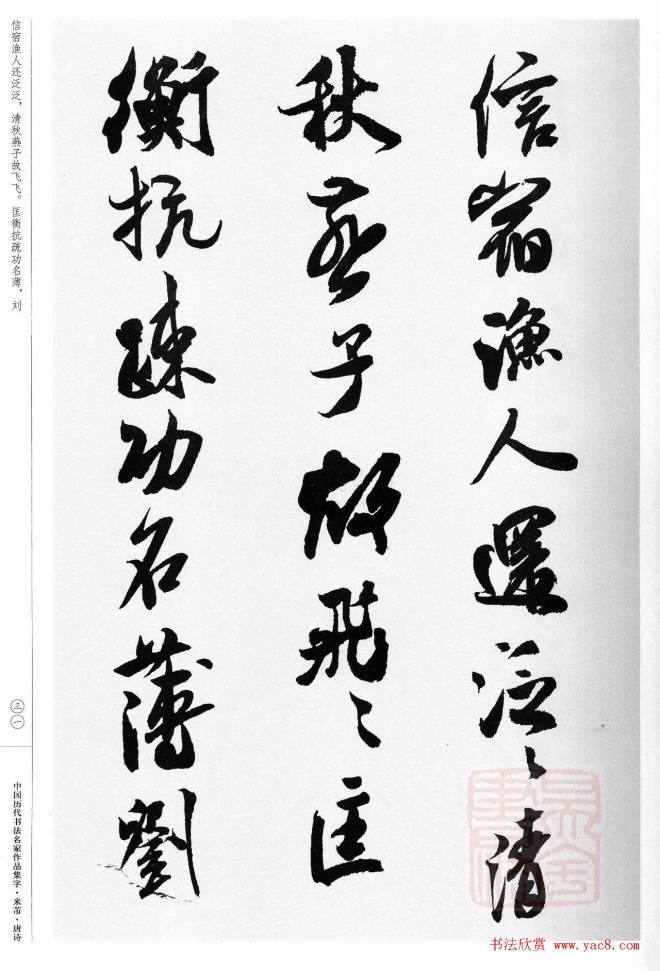 信宿漁人還泛〻清
秋燕子故飛〻匡
衡抗疏功名薄劉
信宿渔人还泛泛，清秋燕子故飞飞。匡衡抗疏功名薄，刘
三一
中国历代书法名家作品集字·米芾·唐诗
书法欣赏 www.yac8.com